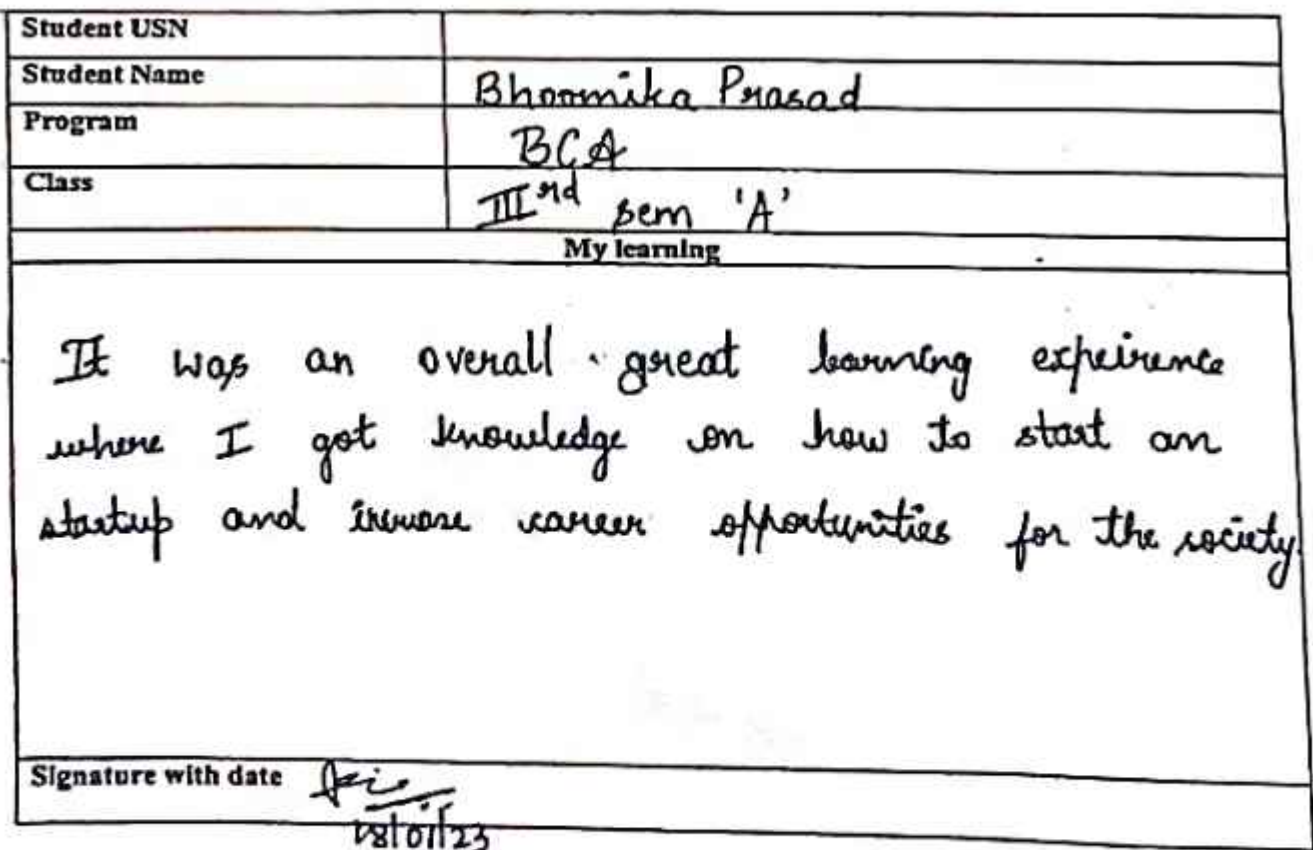 Student USN
Student Name Bhoomika Prasad
Program BCA
Class IIIrd sem 'A'
My learning
It was an overall great learning expeirence
where I got knowledge on how to start an
startup and increase career opportunities for the society.
Signature with date
18/01/23